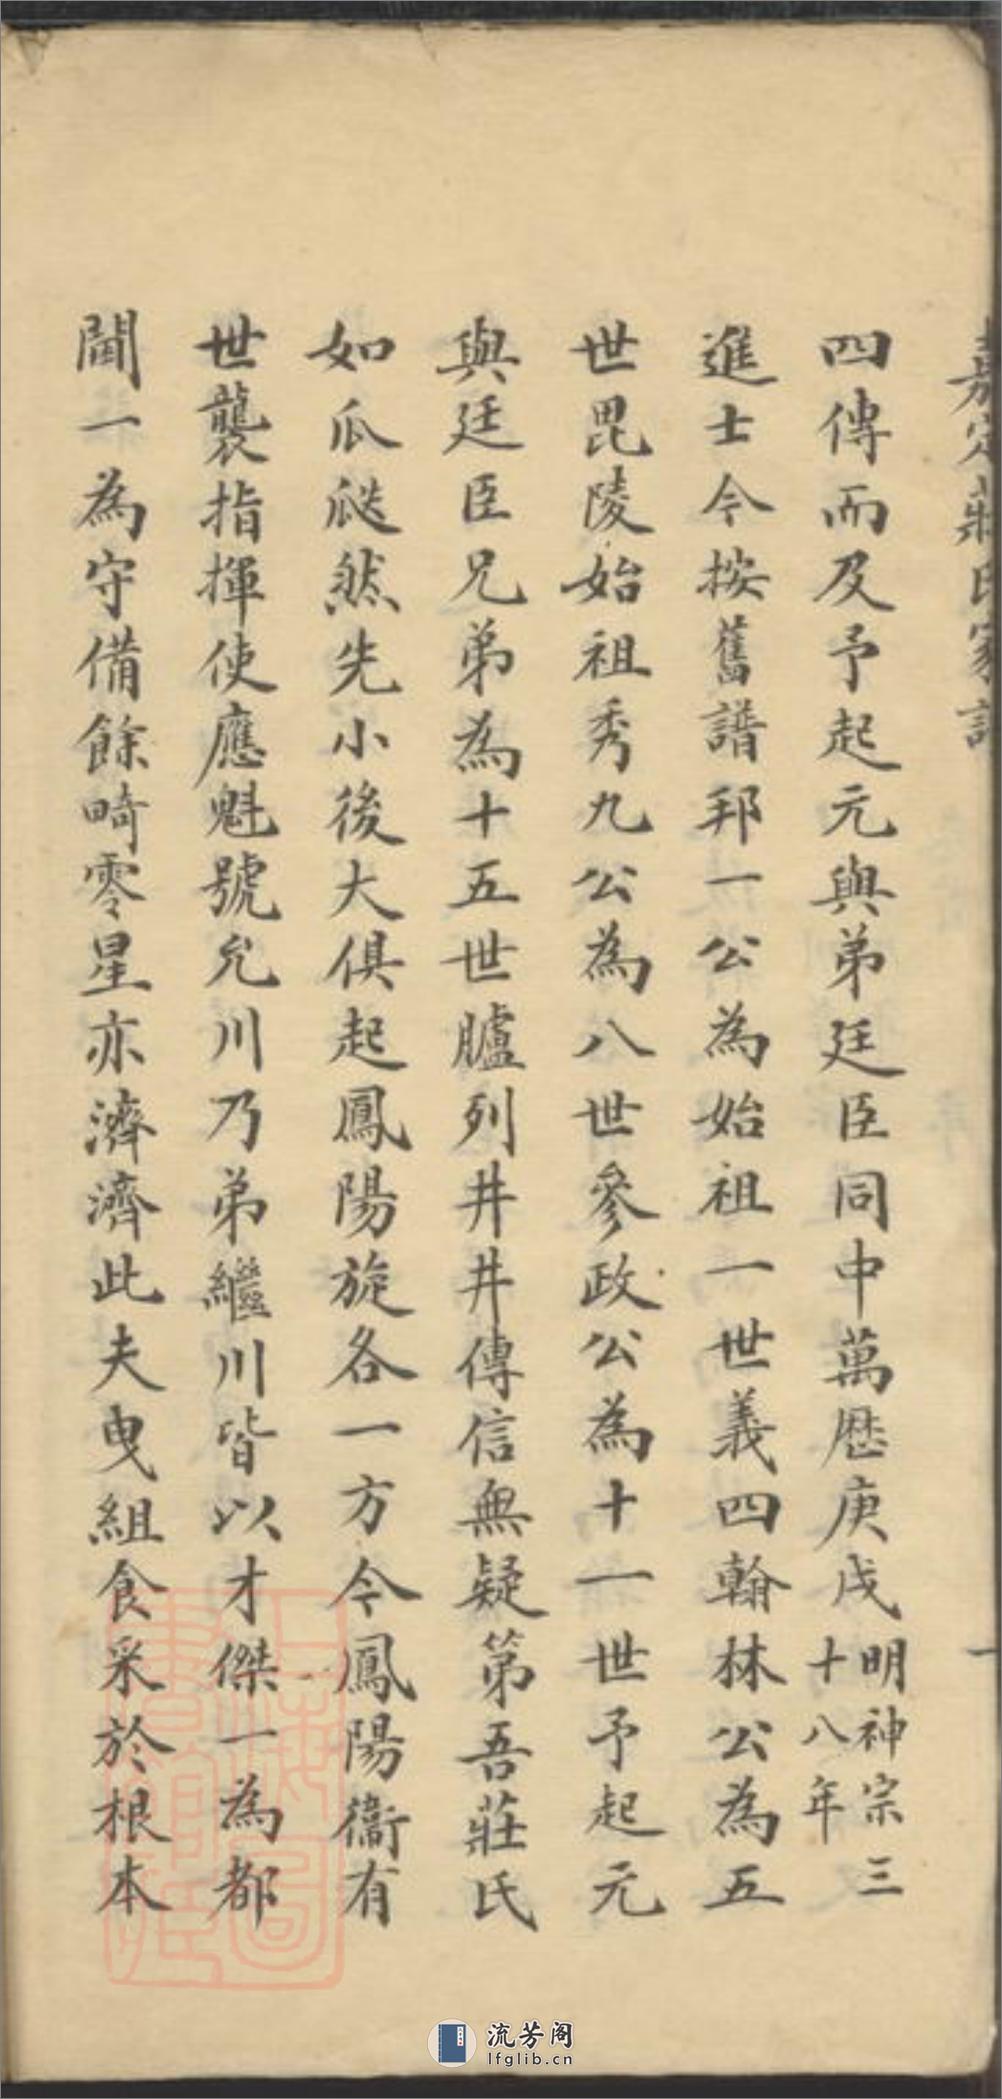 嘉定莊氏家譜
一
四傳而及予起元與弟廷臣同中萬歷庚戌明神宗三十八年
進士今按舊譜邦一公為始祖一世義四翰林公為五
世毘陵始祖秀九公為八世參政公為十一世予起元
與廷臣兄弟為十五世臚列井井傳信無疑第吾莊氏
如瓜瓞然先小後大俱起鳳陽旋各一方今鳳陽衞有
世襲指揮使應魁號允川乃弟繼川皆以才傑一為都
閫一為守備餘畸零星亦濟濟此夫曳組食采於根本
上海圖書館藏
流芳阁
lfglib.cn